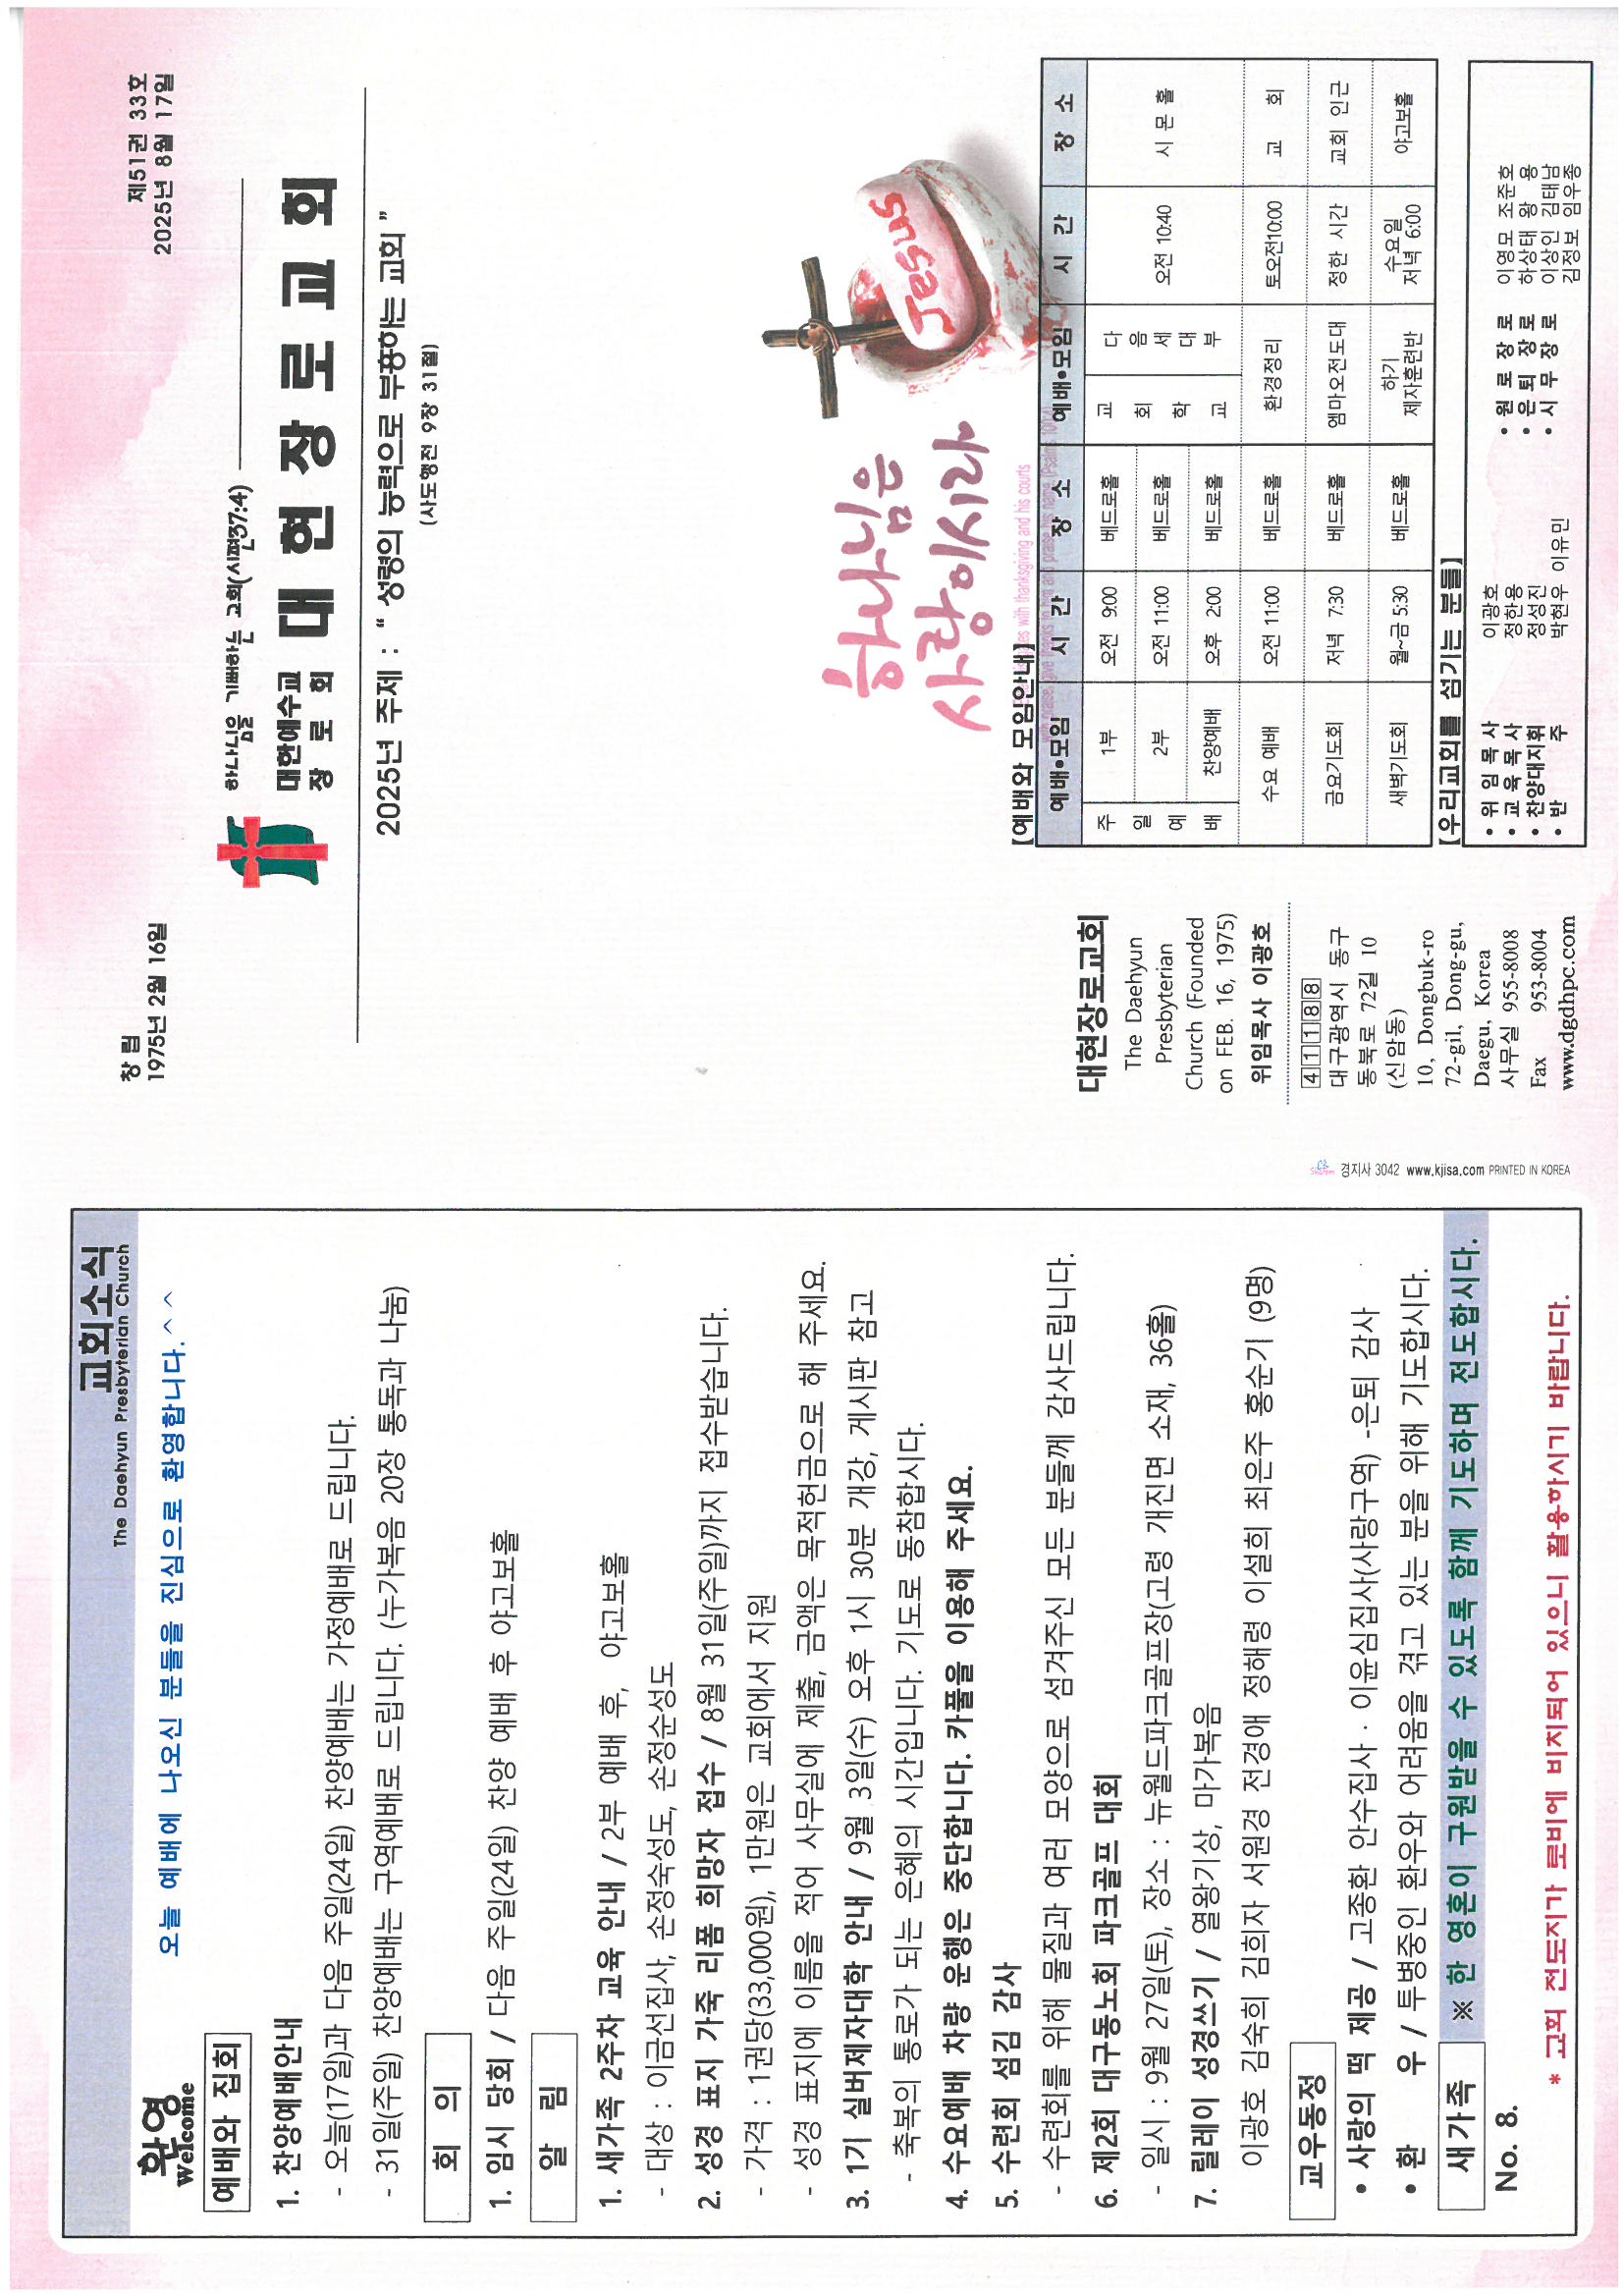 교회소식
The Daehyun Presbyterian Church
환영
Welcome
오늘 예배에 나오신 분들을 진심으로 환영합니다.^^
예배와 집회
1. 찬양예배안내
- 오늘(17일)과 다음 주일(24일) 찬양예배는 가정예배로 드립니다.
- 31일(주일) 찬양예배는 구역예배로 드립니다. (누가복음 20장 통독과 나눔)
회 의
1. 임시 당회 / 다음 주일(24일) 찬양 예배 후 야고보홀
알 림
1. 새가족 2주차 교육 안내 / 2부 예배 후, 야고보홀
- 대상 : 이금선집사, 손정숙성도, 손정순성도
2. 성경 표지 가죽 리폼 희망자 접수 / 8월 31일(주일)까지 접수받습니다.
- 가격 : 1권당(33,000원), 1만원은 교회에서 지원
- 성경 표지에 이름을 적어 사무실에 제출, 금액은 목적헌금으로 해 주세요.
3. 1기 실버제자대학 안내 / 9월 3일(수) 오후 1시 30분 개강, 게시판 참고
- 축복의 통로가 되는 은혜의 시간입니다. 기도로 동참합시다.
4. 수요예배 차량 운행은 중단합니다. 카풀을 이용해 주세요.
5. 수련회 섬김 감사
- 수련회를 위해 물질과 여러 모양으로 섬겨주신 모든 분들께 감사드립니다.
6. 제2회 대구동노회 파크골프 대회
- 일시 : 9월 27일(토), 장소 : 뉴월드파크골프장(고령 개진면 소재, 36홀)
7. 릴레이 성경쓰기 / 열왕기상, 마가복음
이광호 김숙희 김희자 서원경 전경애 정해령 이설희 최은주 홍순기 (9명)
교우동정
• 사랑의 떡 제공 / 고종환 안수집사 · 이윤심집사(사랑구역) -은퇴 감사
• 환 우 / 투병중인 환우와 어려움을 겪고 있는 분을 위해 기도합시다.
새가족
※ 한 영혼이 구원받을 수 있도록 함께 기도하며 전도합시다.
No. 8.
* 교회 전도지가 로비에 비치되어 있으니 활용하시기 바랍니다.
창 립
1975년 2월 16일
제51권 33호
2025년 8월 17일
하나님을 기뻐하는 교회(시편37:4)
대한예수교
장 로 회
대 현 장 로 교 회
2025년 주제 : “ 성령의 능력으로 부흥하는 교회 ”
(사도행전 9장 31절)
하나님은
사랑이시라
Jesus
with thanksgiving and his courts
대현장로교회
The Daehyun
Presbyterian
Church (Founded
on FEB. 16, 1975)
위임목사 이광호
41188
대구광역시 동구
동북로 72길 10
(신암동)
10, Dongbuk-ro
72-gil, Dong-gu,
Daegu, Korea
사무실 955-8008
Fax 953-8004
www.dgdhpc.com
경지사 3042 www.kjisa.com PRINTED IN KOREA
[예배와 모임안내]
예배•모임 시 간 장 소 예배•모임 시 간 장 소
주일예배 1부 오전 9:00 베드로홀 교회학교 다음세대부 오전 10:40 시 몬 홀
2부 오전 11:00 베드로홀
찬양예배 오후 2:00 베드로홀
수요 예배 오전 11:00 베드로홀 환경정리 토오전10:00 교 회
금요기도회 저녁 7:30 베드로홀 엠마오전도대 정한 시간 교회 인근
새벽기도회 월~금 5:30 베드로홀 하기 제자훈련반 수요일 저녁 6:00 야고보홀
[우리교회를 섬기는 분들]
• 위 임 목 사 이광호 • 원 로 장 로 이영모 조준호
• 교 육 목 사 정한용 • 은 퇴 장 로 하상태 왕 용
• 찬양대지휘 정성진 • 시 무 장 로 이상인 김태남
• 반 주 박현우 이유민 김정보 임우종